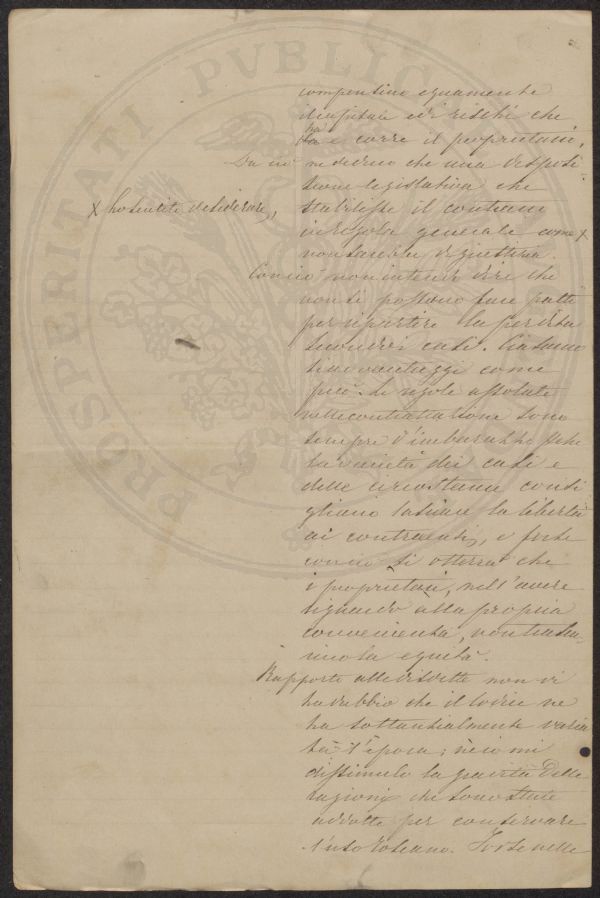 PROSPERITATI PVBLIC
compensino equamente
il capitale ed i rischi che
ha e corre il proprietario.
Da ciò ne deduco che una disposi
zione legislativa che
x ho sentito desiderare,
stabilisse il contrario
in regola generale come x
non sarebbe di giustizia.
Con ciò non intendo dire che
non si possano fare patti
per ripartire la perdita
secondo i casi. Ciascuno
come
più. Le regole assolute
nelle contrattazione sono
sempre d'imbarazzo perche
la varietà dei casi e
delle circostanze consi
gliano lasciare la libertà
ai contraenti, e forse
con ciò si otterrà che
i proprietari, nell'avere
riguardo alla propria
convenienza, non trascu-
rino la equità.
Rapporto alle disdette non vi
ha dubbio che il Codice ne
ha sostanzialmente varia
ta l'epoca; nè io mi
dissimulo la gravità delle
ragioni che sono state
addotte per conservare
l'uso toscano. Forse nelle